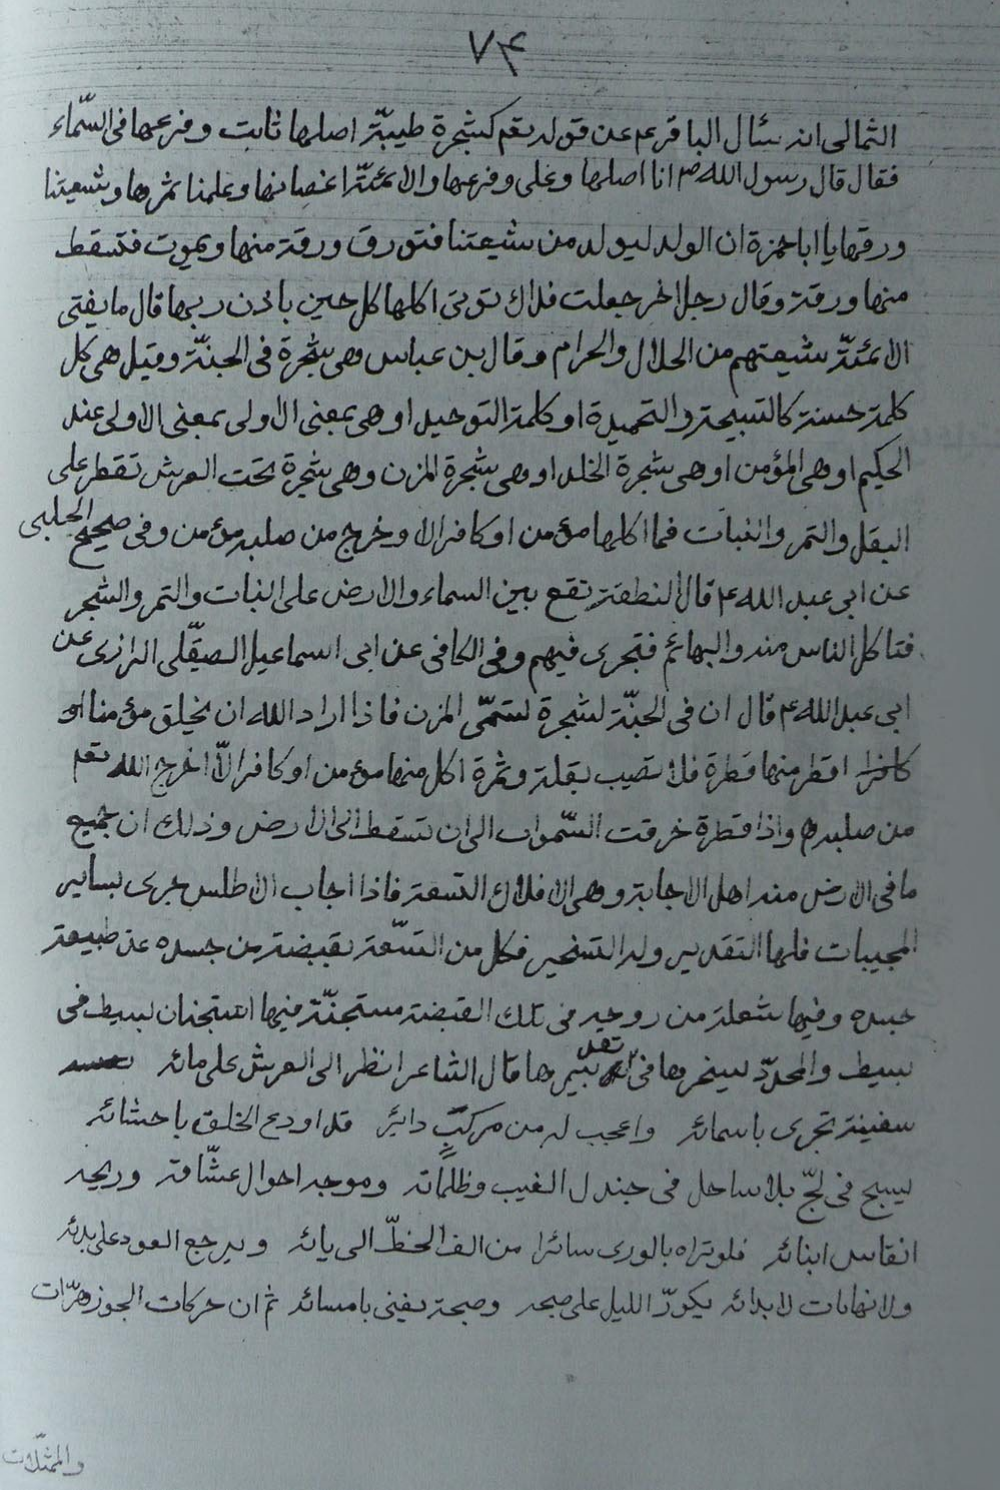 ٧٤
الثمالى انه سئال الباقر ع م عن قوله تعم كشجرة طيبّة اصلها ثابت و فرعها فى السّماء
فقال قال رسول الله ص انا اصلها وعلى و فرعها والائمّة اغصانها وعلمنا ثمرها و شيعتنا
ورقها يا ابا حمزة ان الولد ليولد من شيعتنا فتورق ورقة منها و يموت فتسقط
منها ورقة وقال رجل اخر جعلت فداك تؤتى اكلها كل حين باذن ربها قال ما يفتى
الائمّة شيعتهم من الحلال والحرام وقال بن عباس وهى شجرة فى الجنّة وقيل هى كل
كلمة حسنة كالتسبيحة والتحميدة او كلمة التوحيد او هى بمعنى الاولى بمعنى الاولى عند
الحكيم او هى المؤمن او هى شجرة الخلد او هى شجرة المزن وهى شجرة تحت العرش تقطر على
البقل والثمر والنبات فما اكلها مؤمن او كافر الا وخرج من صلبه مؤمن وفى صحيح الحلبى
عن ابى عبد الله ع قال النطفة تقع بين السماء والارض على النبات والثمر والشجر
فتاكل الناس منه والبهائم فتجرى فيهم وفى الكافى عن ابى اسماعيل الصيقّلى الرازى عن
ابى عبد الله ع قال ان فى الجنّة لشجرة لتسمّى المزن فاذا اراد الله ان يخلق مؤمنا او
كافرا اقطر منها قطرة فلا تصيب بقلة وثمرة اكل منها مؤمن او كافر الّا اخرج الله تعم
من صلبه واذا قطرة خرقت السّموات الى ان تسقط الى الارض وذلك ان جميع
ما فى الارض منه اهل الاجابة وهى الافلاك التسعة فاذا اجاب الاطلس جرى بساير
المجيبات فلها التقدير وله التسخير فكل من التسّعة بقبضة من جسده عن طبيعة
جسده وفيها شعلة من روحه فى تلك القبضة مستجنّة فيها استجنان بسيط فى
بسيط والمحدّد يسخرها فى تقديرها قال الشاعر انظر الى العرش على مائه
سفينة تجرى باسمائه واعجب له من مركبٍ دائر قد اودع الخلق باحشائه
يسبح فى لجّ بلا ساحل فى جندل الغيب وظلمائه وموجه احوال عشّاقه وريحه
انفاس ابنائه فلو تراه بالورى سائرا من الف الخطّ الى يائه ويرجع العود على بدئه
ولا نهايات لابدائه يكورّ الليل على صبحه وصبحه يفنى بامسائه ثم ان حركات الجوزهرّات
والممثّلات